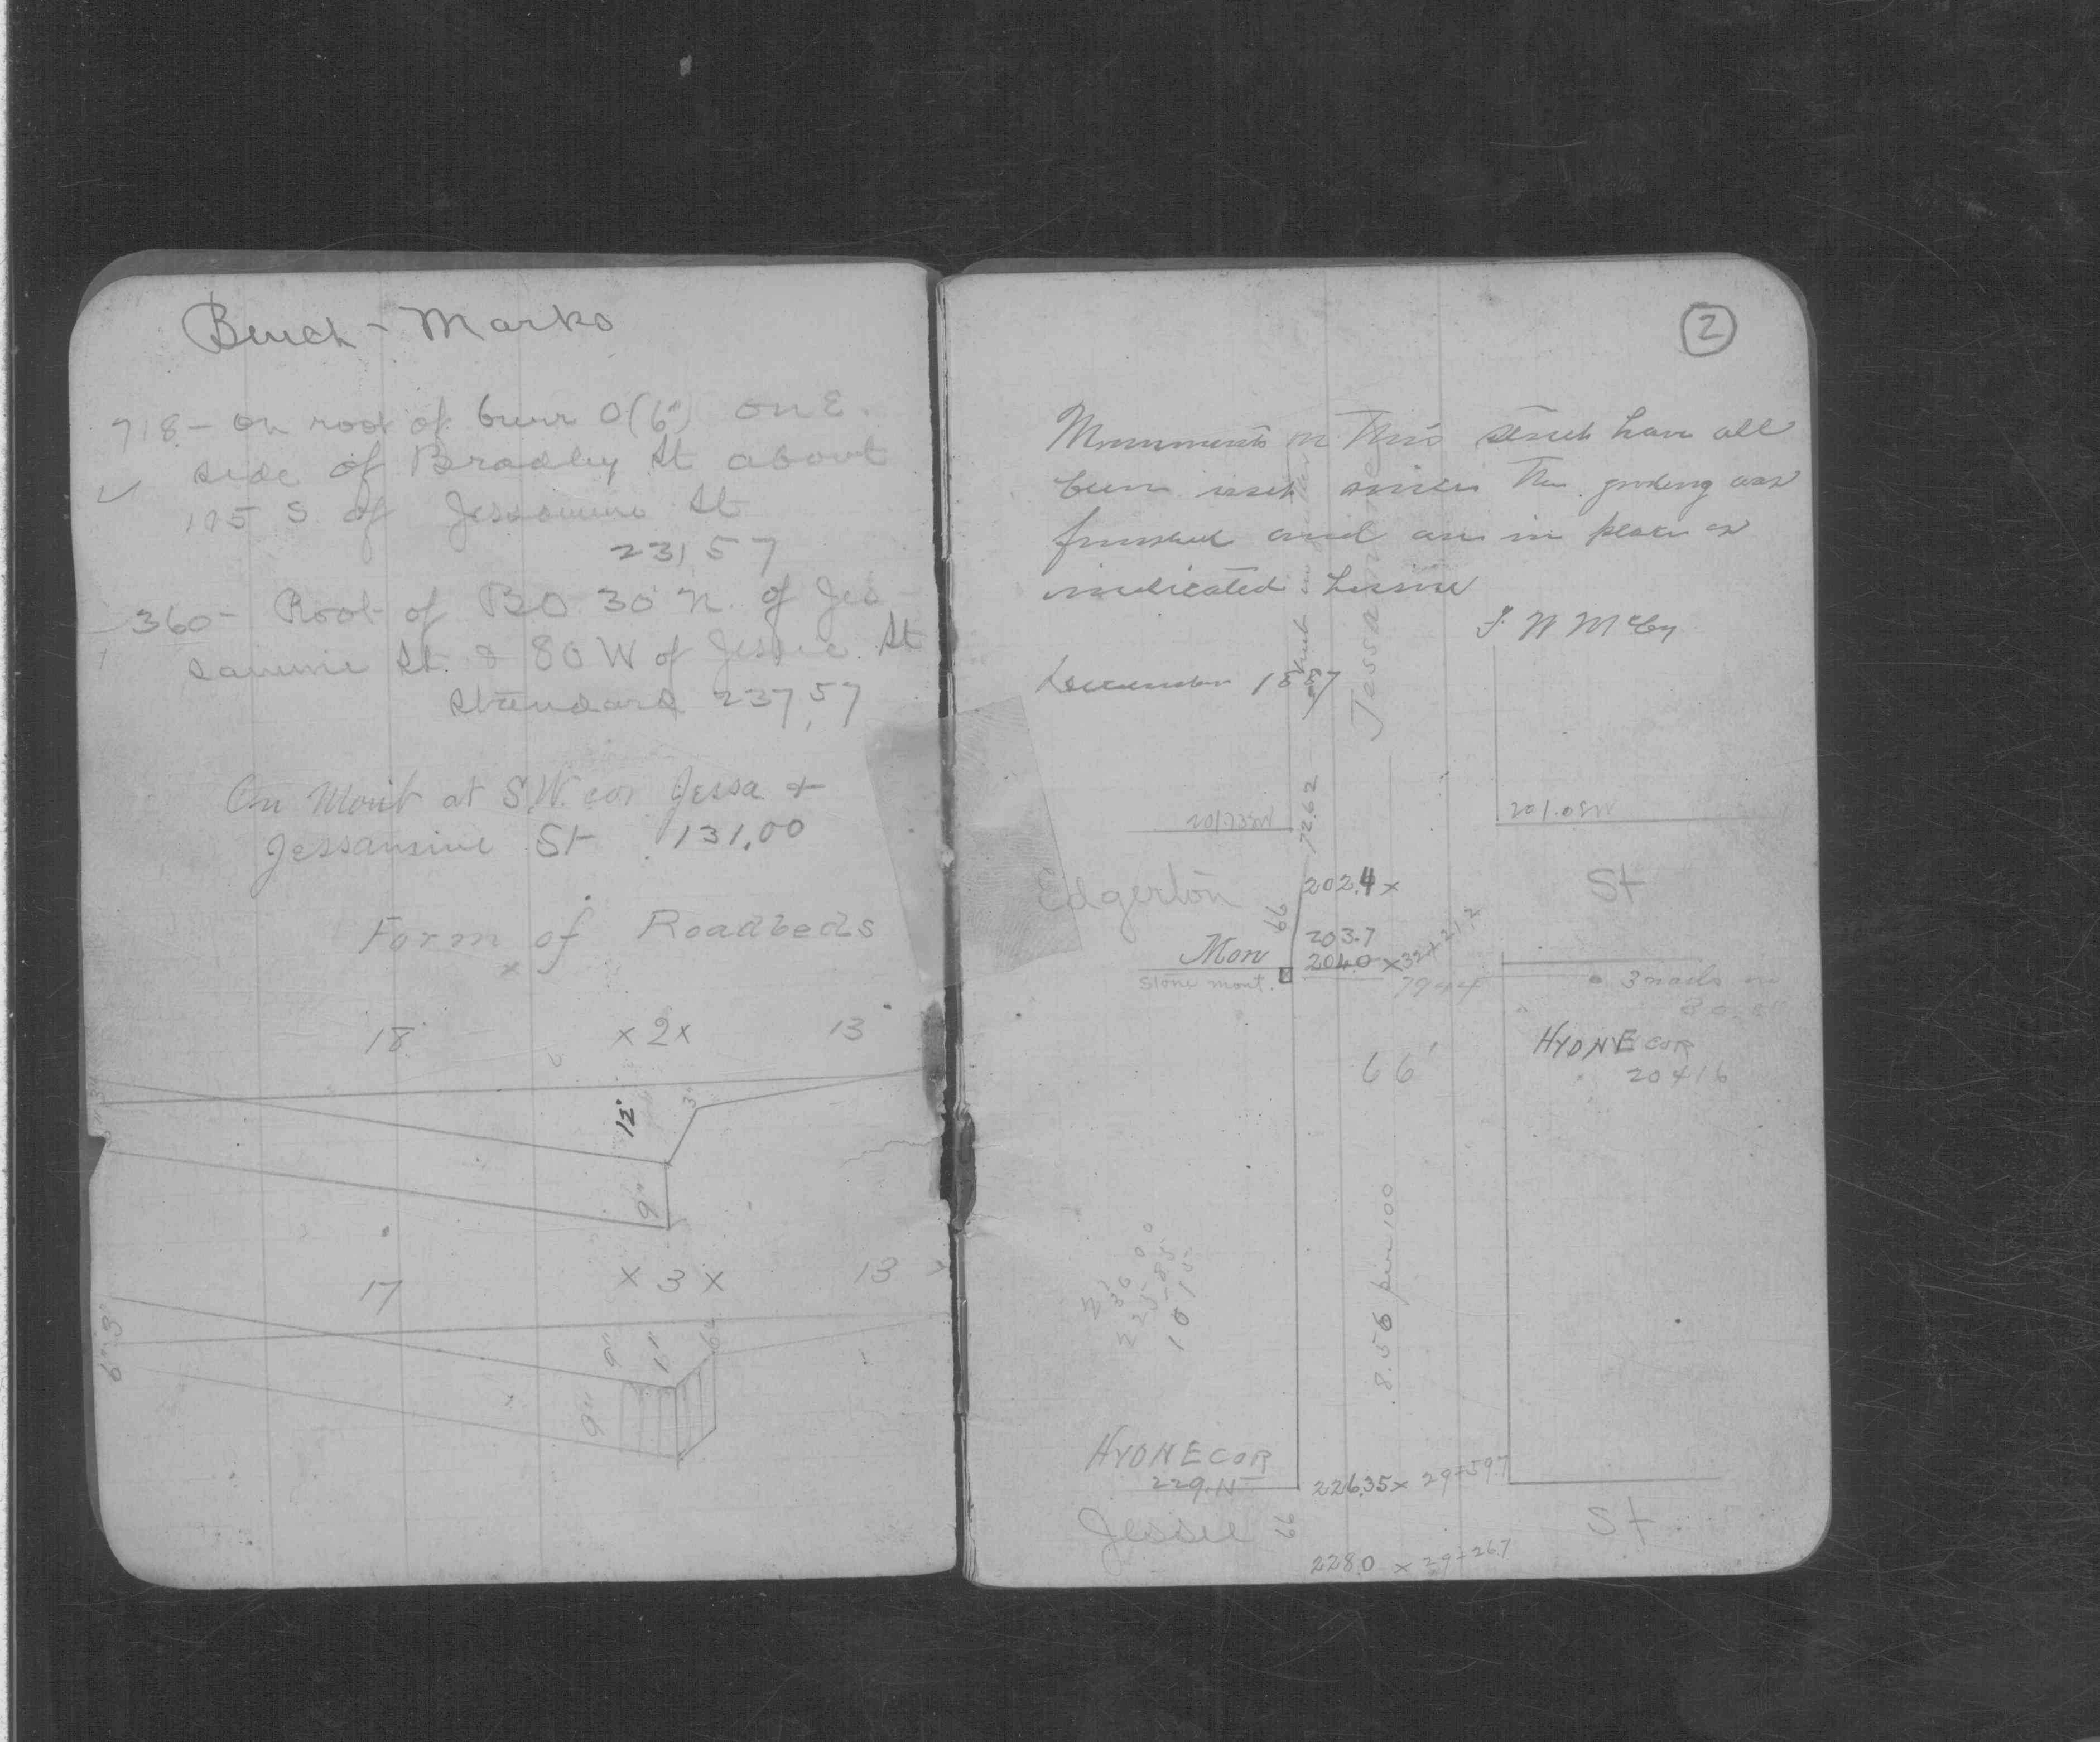 Bench - Marks
718 - on root of burr O (6") on E.
side of Bradley St about
S of Jessamine St
231,57
360 - Root of BO 30 N. of Jes-
samine St. & 80 W of Jessie St
Standard 237,57
On Mon't at S.W. cor Jessa +
Jessamine St 131,00
Form of Roadbeds
18 x 2 x 13
12" 3"
9"
17 x 3 x 13
6" 3" 9"
9"
2
Monuments on This street have all
been set since The grading was
finished and are in place as
indicated hereine
F. W McCoy
December 1887
Jessamine
72.62
201.0 SW
Edgerton 66 202.4 x St
203.7
Mon 204.0 x
Stone mont. 3 nails in
66' HYD N E COR
204 16
8.56 per 100
HYD N E COR
226.35 x
Jessie 66 St
228.0 x